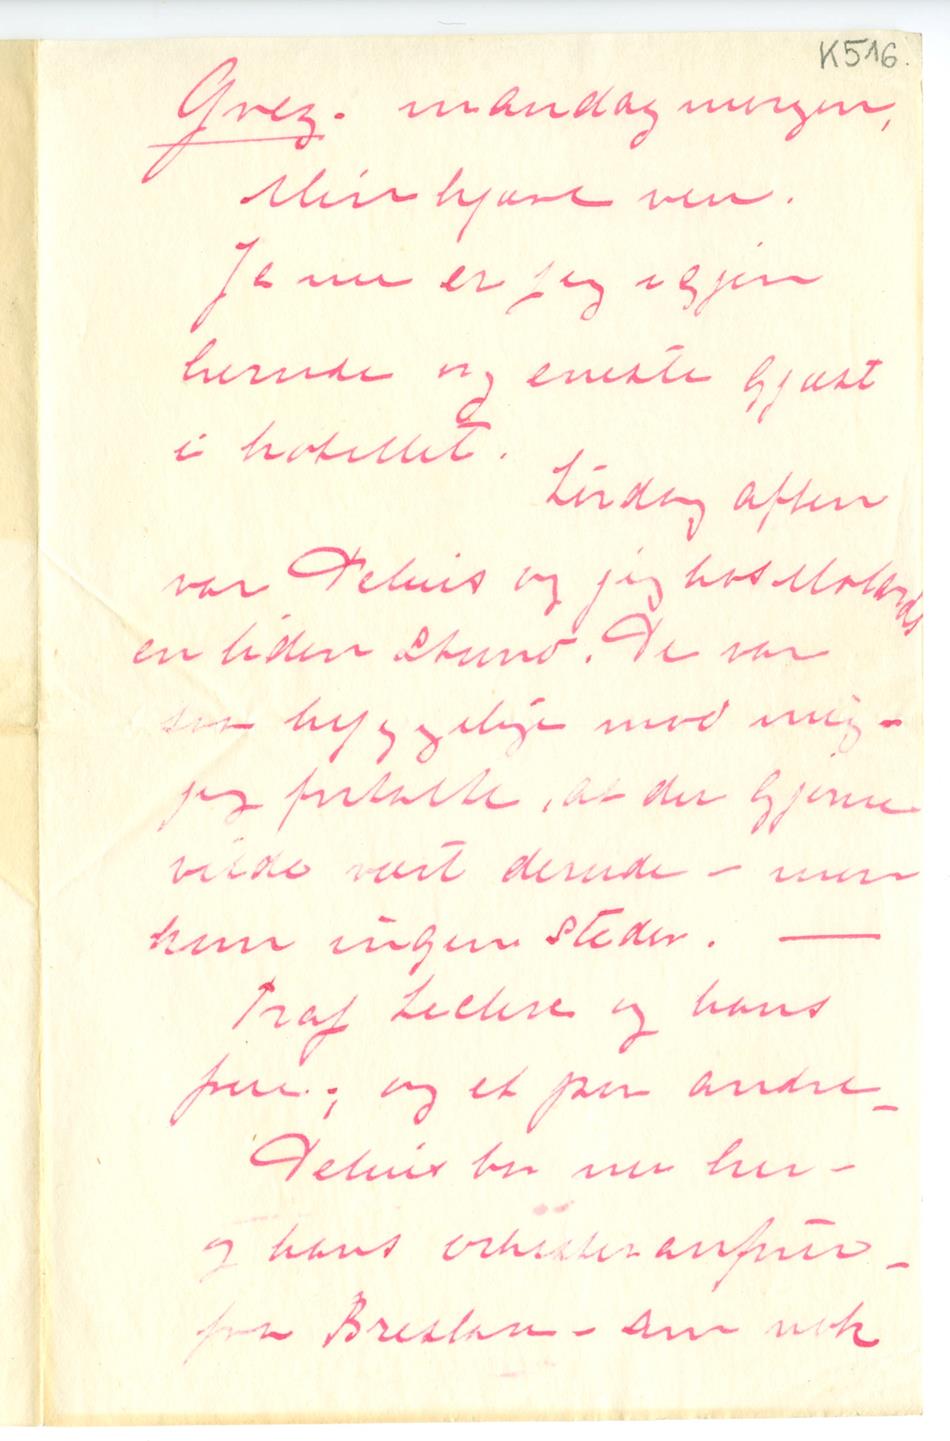 K516.
Grez. mandag morgen,
Min kjære ven.
Ja nu er jeg igjen
herude og eneste gjæst
i hotellet.
Lördag aften
var Delius og jeg hos Molards
en liden stund. De var
saa hyggelige mod mig –
jeg fortalte, at du gjerne
vilde vært derude – men
kun ingen steder. —
Traf Leclerc og hans
frue; og et par andre –
Delius bor nu her –
og hans orkester anfører –
fra Breslau – som nok